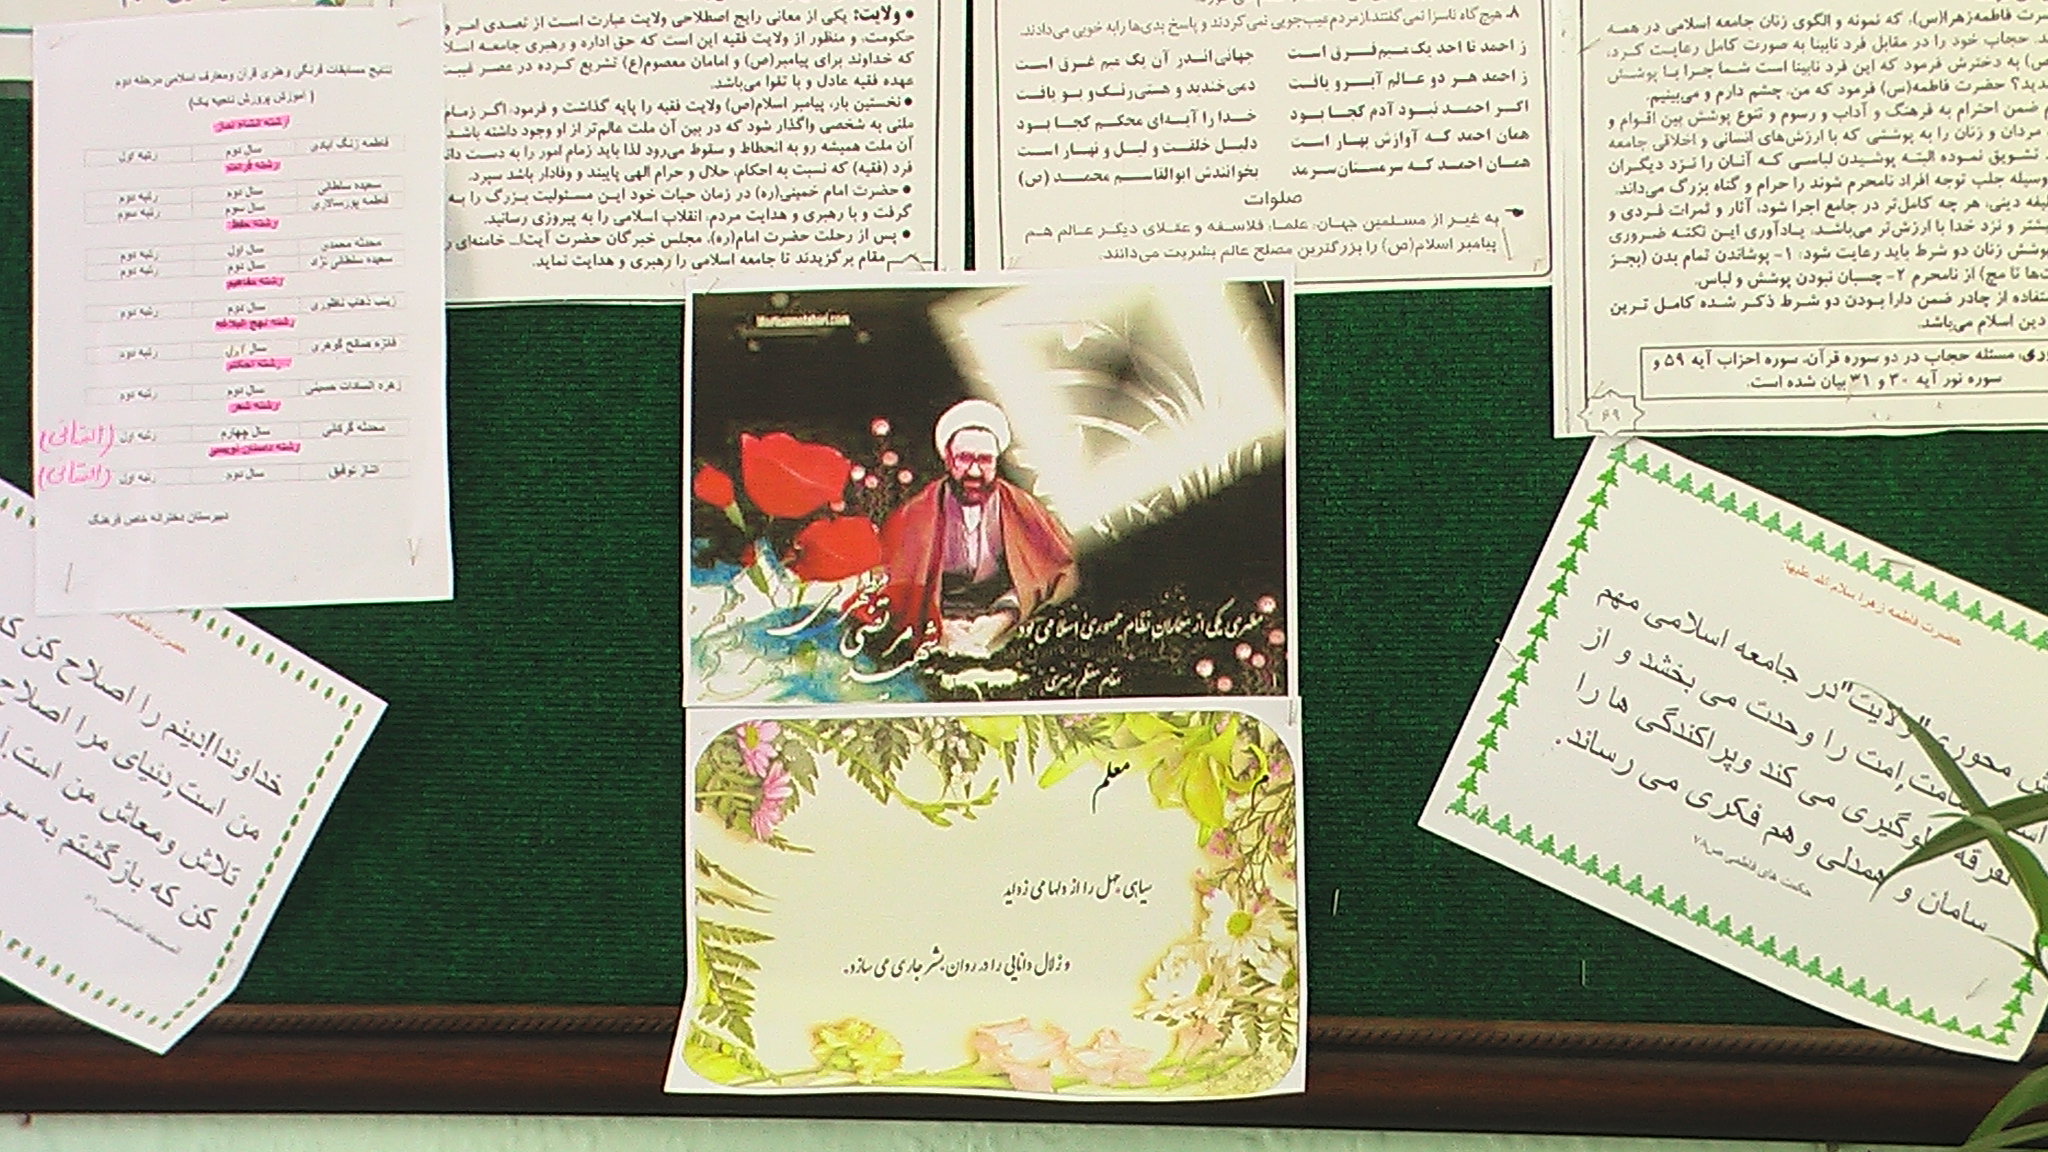 نتایج مسابقات فرهنگی وهنری قرآن ومعارف اسلامی مرحله دوم
( آموزش پرورش ناحیه یک)
رشته انشاء نماز
فاطمه زنگ آبادی سال دوم رتبه اول
رشته قرائت
سعیده سلطانی سال دوم رتبه دوم
فاطمه پورسالاری سال سوم رتبه دوم
رشته حفظ
محدثه محمدی سال اول رتبه دوم
سعیده سلطانی نژاد سال دوم رتبه دوم
رشته مفاهیم
زینب ذهاب ناظوری سال دوم رتبه دوم
رشته نهج البلاغه
فائزه صالح گوهری سال اول رتبه دوم
رشته احکام
زهره السادات حسینی سال دوم رتبه دوم
رشته شعر
محدثه گرکانی سال چهارم رتبه اول (استانی)
رشته داستان نویسی
الناز توفیق سال دوم رتبه اول (استانی)
دبیرستان دخترانه خاص فرهنگ
• ولایت: یکی از معانی رایج اصطلاحی ولایت عبارت است از تصدی امر و
حکومت، و منظور از ولایت فقیه این است که حق اداره و رهبری جامعه اسلا
که خداوند برای پیامبر(ص) و امامان معصوم(ع) تشریع کرده در عصر غیبت
عهده فقیه عادل و با تقوا می‌باشد.
• نخستین بار، پیامبر اسلام(ص) ولایت فقیه را پایه گذاشت و فرمود: اگر زمام
ملتی به شخصی واگذار شود که در بین آن ملت عالم‌تر از او وجود داشته باشد
آن ملت همیشه رو به انحطاط و سقوط می‌رود لذا باید زمام امور را به دست
فرد (فقیه) که نسبت به احکام، حلال و حرام الهی پایبند و وفادار باشد سپرد.
• حضرت امام خمینی(ره) در زمان حیات خود این مسئولیت بزرگ را به
گرفت و با رهبری و هدایت مردم، انقلاب اسلامی را به پیروزی رسانید.
• پس از رحلت حضرت امام(ره)، مجلس خبرگان حضرت آیت‌ا... خامنه‌ای
مقام برگزیدند تا جامعه اسلامی را رهبری و هدایت نماید.
۸- هیچ گاه ناسزا نمی‌گفتند از مردم عیب‌جویی نمی‌کردند و پاسخ بدی‌ها را به خوبی می‌دادند.
ز احمد تا احد یک میم فرق است جهانی اندر آن یک میم غرق است
ز احمد هر دو عالم آبرو یافت دمی خندید و هستی رنگ و بو یافت
اگر احمد نبود آدم کجا بود خدا را آیه‌ای محکم کجا بود
همان احمد که آوازش بهار است دلیل خلقت و لیل و نهار است
همان احمد که سرمستان سرمد بخوانندش ابوالقاسم محمد (ص)
صلوات
به غیر از مسلمین جهان، علما، فلاسفه و عقلای دیگر عالم هم
پیامبر اسلام(ص) را بزرگترین مصلح عالم بشریت می‌دانند.
رت فاطمه‌زهرا(س)، که نمونه و الگوی زنان جامعه اسلامی در همه
حجاب خود را در مقابل فرد نابینا به صورت کامل رعایت کرد،
ص) به دخترش فرمود که این فرد نابینا است شما چرا با پوشش
دید؟ حضرت فاطمه(س) فرمود که من، چشم دارم و می‌بینم.
ضمن احترام به فرهنگ و آداب و رسوم و تنوع پوشش بین اقوام و
مردان و زنان را به پوششی که با ارزش‌های انسانی و اخلاقی جامعه
تشویق نموده البته پوشیدن لباسی که آنان را نزد دیگران
وسیله جلب توجه افراد نامحرم شوند را حرام و گناه بزرگ می‌داند.
یفه دینی، هر چه کامل‌تر در جامع اجرا شود، آثار و ثمرات فردی و
یشتر و نزد خدا با ارزش‌تر می‌باشد. یادآوری این نکته ضروری
پوشش زنان دو شرط باید رعایت شود: ۱- پوشاندن تمام بدن (بجز
ت‌ها تا مچ) از نامحرم ۲- چسبان نبودن پوشش و لباس.
ستفاده از چادر ضمن دارا بودن دو شرط ذکر شده کامل ترین
دین اسلام می‌باشد.
وری، مسئله حجاب در دو سوره قرآن، سوره احزاب آیه ۵۹ و
سوره نور آیه ۳۰ و ۳۱ بیان شده است.
۶۹
شهید مرتضی مطهری
مطهری یکی از معماران نظام جمهوری اسلامی بود
مقام معظم رهبری
معلم
سیاهی جهل را از دلها می زداید
و زلال دانایی را در روان بشر جاری می سازد.
حضرت فاطمه
خداوندا!دینم را اصلاح کن که
من است,دنیای مرا اصلاح
تلاش ومعاش من است.
کن که بازگشتم به سو
حضرت فاطمه زهرا سلام الله علیها:
محوری "ولایت"در جامعه اسلامی مهم
امت را وحدت می بخشد و از
تفرقه جلوگیری می کند وپراکندگی ها را
سامان و همدلی و هم فکری می رساند.
حکمت های فاطمی ص۷۸